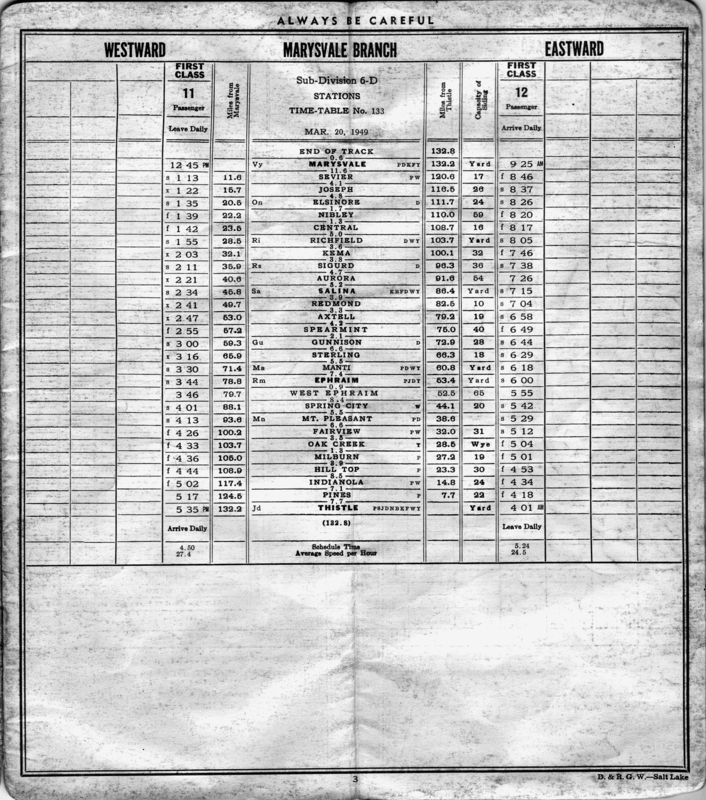 ALWAYS BE CAREFUL
WESTWARD MARYSVALE BRANCH EASTWARD
FIRST CLASS Miles from Marysvale Sub-Division 6-D Miles from Thistle Capacity of Siding FIRST CLASS
11 STATIONS 12
Passenger TIME-TABLE No. 133 Passenger
Leave Daily MAR. 20, 1949 Arrive Daily
END OF TRACK 132.8
0.6
12 45 PM Vy MARYSVALE PDKFY 132.2 Yard 9 25 AM
11.6
s 1 13 11.6 SEVIER PW 120.6 17 f 8 46
4.1
s 1 22 15.7 JOSEPH 116.5 26 s 8 37
4.8
s 1 35 20.5 On ELSINORE D 111.7 24 s 8 26
1.7
f 1 39 22.2 NIBLEY 110.0 59 f 8 20
1.3
f 1 42 23.5 CENTRAL 108.7 16 f 8 17
5.0
s 1 55 28.5 Ri RICHFIELD DWY 103.7 Yard s 8 05
3.6
x 2 03 32.1 KEMA 100.1 32 f 7 46
3.8
s 2 11 35.9 Rs SIGURD D 96.3 36 s 7 38
4.7
x 2 21 40.6 AURORA 91.6 54 7 26
5.2
s 2 34 45.8 Sa SALINA KBPDWY 86.4 Yard s 7 15
3.9
x 2 41 49.7 REDMOND 82.5 10 s 7 04
3.3
x 2 47 53.0 AXTELL 79.2 19 s 6 58
4.2
f 2 55 57.2 SPEARMINT 75.0 40 f 6 49
2.1
s 3 00 59.3 Gu GUNNISON D 72.9 28 s 6 44
6.6
x 3 16 65.9 STERLING 66.3 18 s 6 29
5.5
s 3 30 71.4 Ma MANTI PDWY 60.8 Yard s 6 18
7.4
s 3 44 78.8 Rm EPHRAIM PJDY 53.4 Yard s 6 00
0.9
3 46 79.7 WEST EPHRAIM 52.5 65 5 55
8.4
s 4 01 88.1 SPRING CITY W 44.1 20 s 5 42
5.5
s 4 13 93.6 Mn MT. PLEASANT PD 38.6 s 5 29
6.6
f 4 26 100.2 FAIRVIEW PW 32.0 31 s 5 12
3.5
f 4 33 103.7 OAK CREEK Y 28.5 Wye f 5 04
1.3
f 4 36 105.0 MILBURN P 27.2 19 f 5 01
3.9
f 4 44 108.9 HILL TOP P 23.3 30 f 4 53
8.5
f 5 02 117.4 INDIANOLA PW 14.8 24 f 4 34
7.1
5 17 124.5 PINES P 7.7 22 f 4 18
7.7
5 35 PM 132.2 Jd THISTLE PSJDNBKFWY Yard 4 01 AM
Arrive Daily (132.8) Leave Daily
4.50 Schedule Time 5.24
27.4 Average Speed per Hour 24.5
3
D. & R. G. W.—Salt Lake